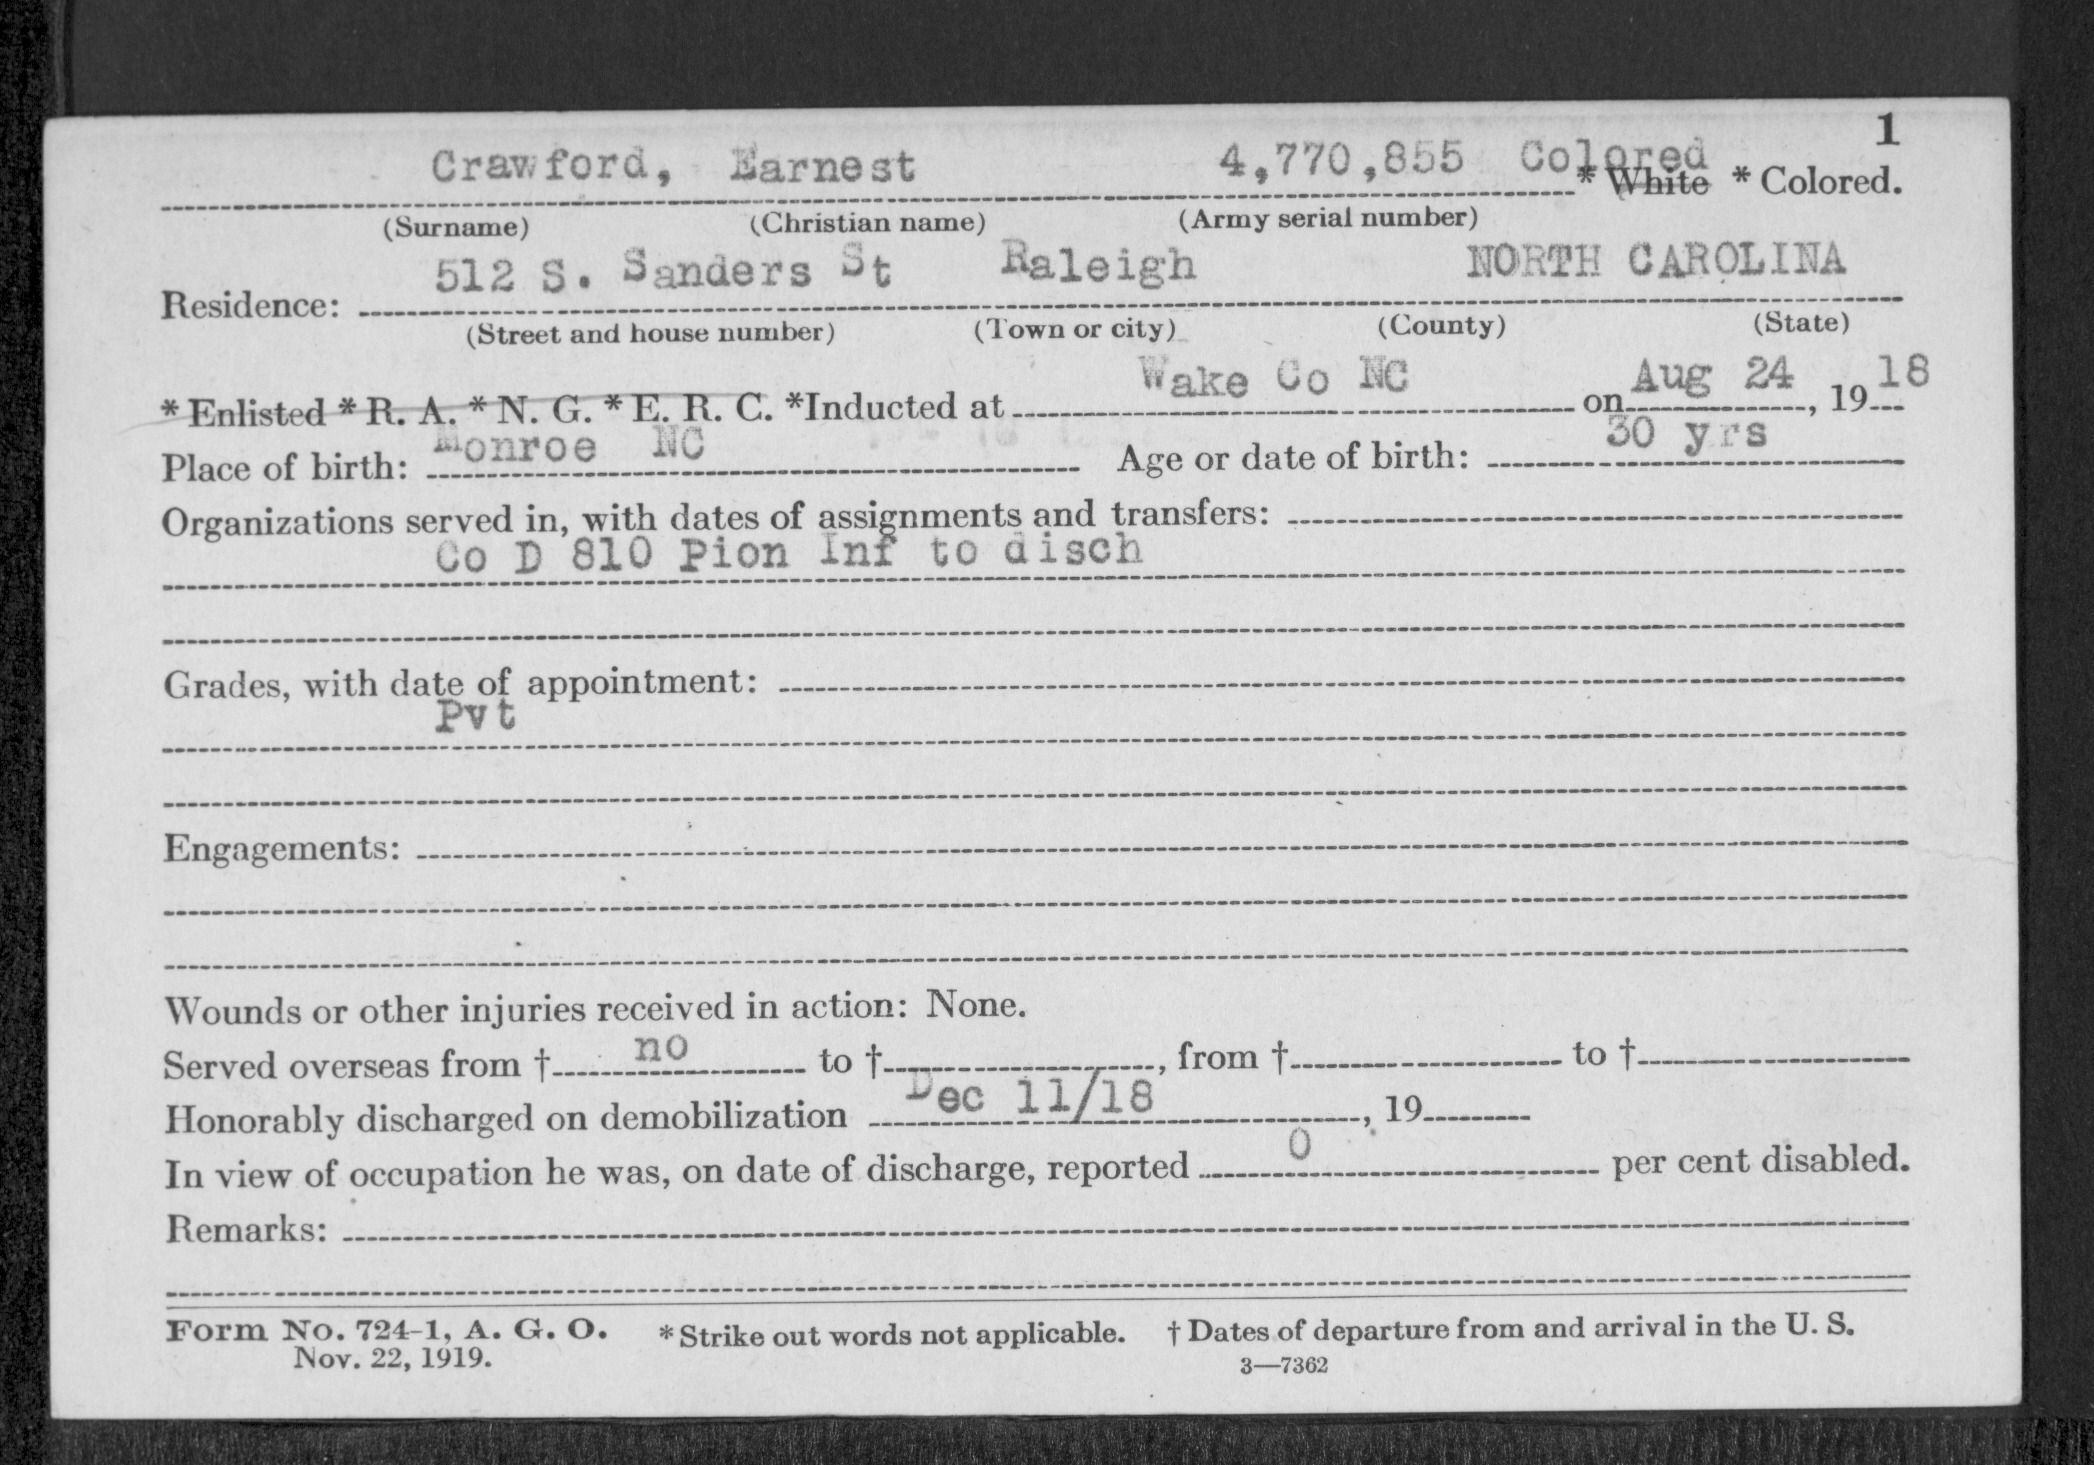 1
Crawford, Earnest 4,770,855 Colored * White * Colored.
(Surname) (Christian name) (Army serial number)
512 S. Sanders St Raleigh NORTH CAROLINA
Residence:
(Street and house number) (Town or city) (County) (State)
* Enlisted * R. A. * N. G. * E. R. C. *Inducted at Wake Co NC on Aug 24, 1918
Place of birth: Monroe NC Age or date of birth: 30 yrs
Organizations served in, with dates of assignments and transfers:
Co D 810 Pion Inf to disch
Grades, with date of appointment:
Pvt
Engagements:
Wounds or other injuries received in action: None.
Served overseas from † no to †, from † to †
Honorably discharged on demobilization Dec 11/18, 19
In view of occupation he was, on date of discharge, reported 0 per cent disabled.
Remarks:
Form No. 724-1, A. G. O. * Strike out words not applicable. † Dates of departure from and arrival in the U. S.
Nov. 22, 1919. 3—7362